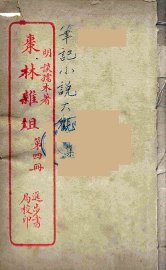 筆記小說大觀
明 談孺木著
棗林雜俎
第四冊
進步書
局校印